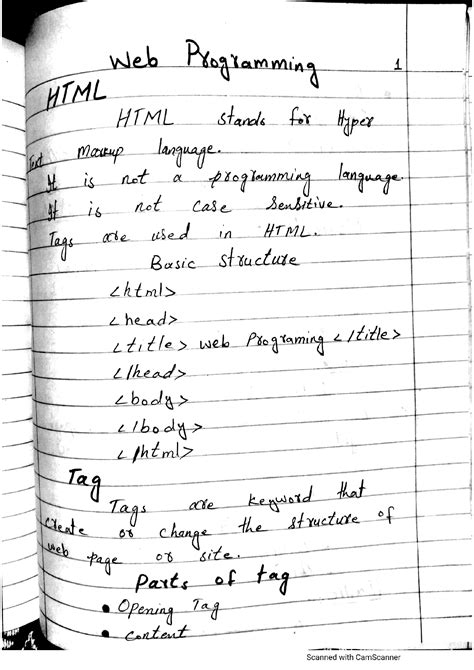 Web Programming 1
HTML
HTML stands for Hyper
Text Markup language.
It is not a programming language.
It is not case sensitive.
Tags are used in HTML.
Basic Structure
<html>
<head>
<title> Web Programing </title>
</head>
<body>
</body>
</html>
Tag
Tags are keyword that
create or change the structure of
web page or site.
Parts of tag
• Opening Tag
• Content
Scanned with CamScanner